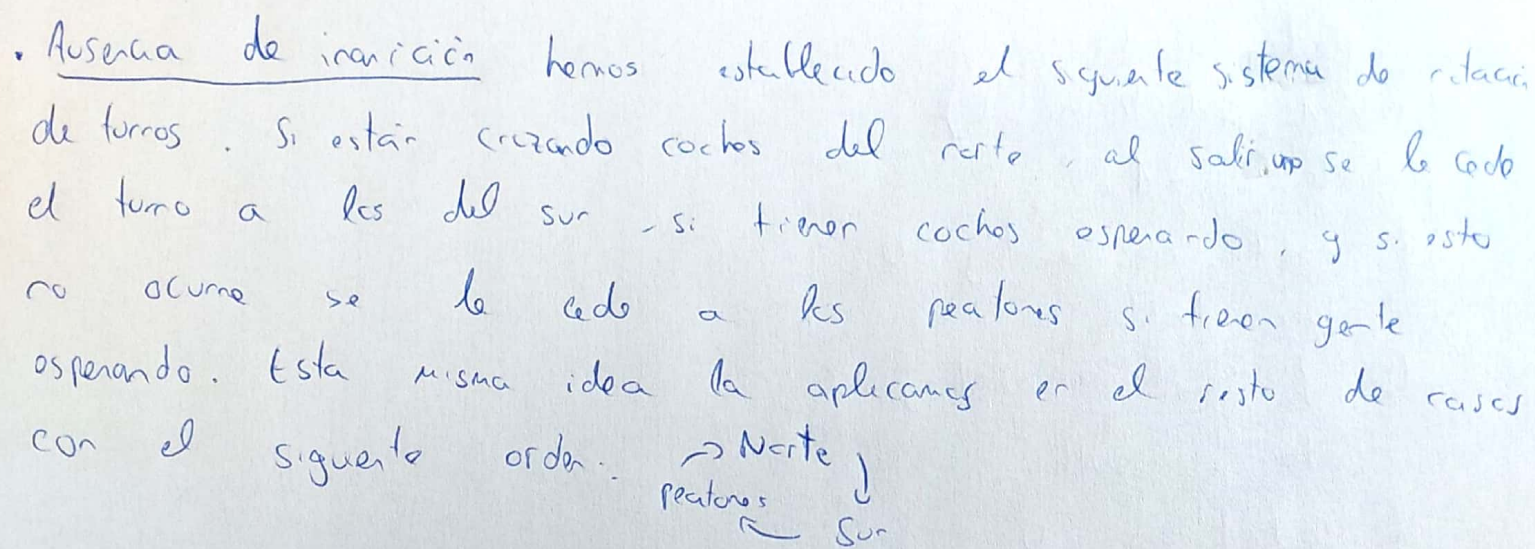 . Ausencia de inanición hemos establecido el siguiente sistema de rotaci
de turnos. Si están cruzando coches del norte, al salir uno se le cede
el turno a los del sur, si tienen coches esperando, y si esto
no ocurre se le cede a los peatones si tienen gente
esperando. Esta misma idea la aplicamos en el resto de casos
con el siguiente orden. → Norte
peatones ↓
← Sur